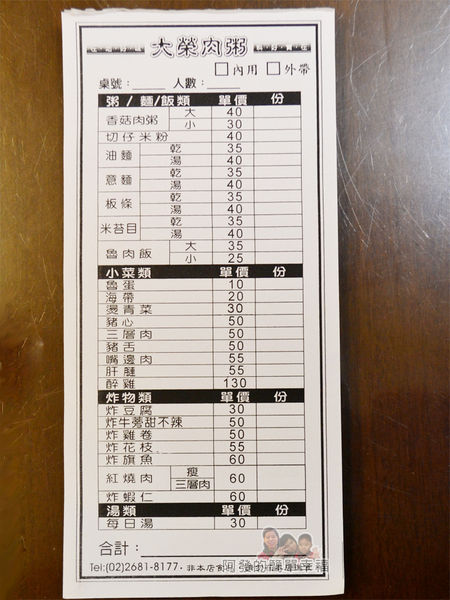 在地好味 大榮肉粥
內用 外帶
桌號： 人數：
粥/麵/飯類 單價 份
香菇肉粥 大 40
小 30
切仔米粉 40
油麵 乾 35
湯 40
意麵 乾 35
湯 40
板條 乾 35
湯 40
米苔目 乾 35
湯 40
魯肉飯 大 35
小 25
小菜類 單價 份
魯蛋 10
海帶 20
燙青菜 30
豬心 50
三層肉 50
豬舌 50
嘴邊肉 55
肝腱 55
醉雞 130
炸物類 單價 份
炸豆腐 30
炸牛蒡甜不辣 50
炸雞卷 50
炸花枝 55
炸旗魚 60
紅燒肉 瘦 60
三層肉
炸蝦仁 60
湯類 單價 份
每日湯 30
合計：
Tel:(02)2681-8177·非本店食
阿發的簡單幸福